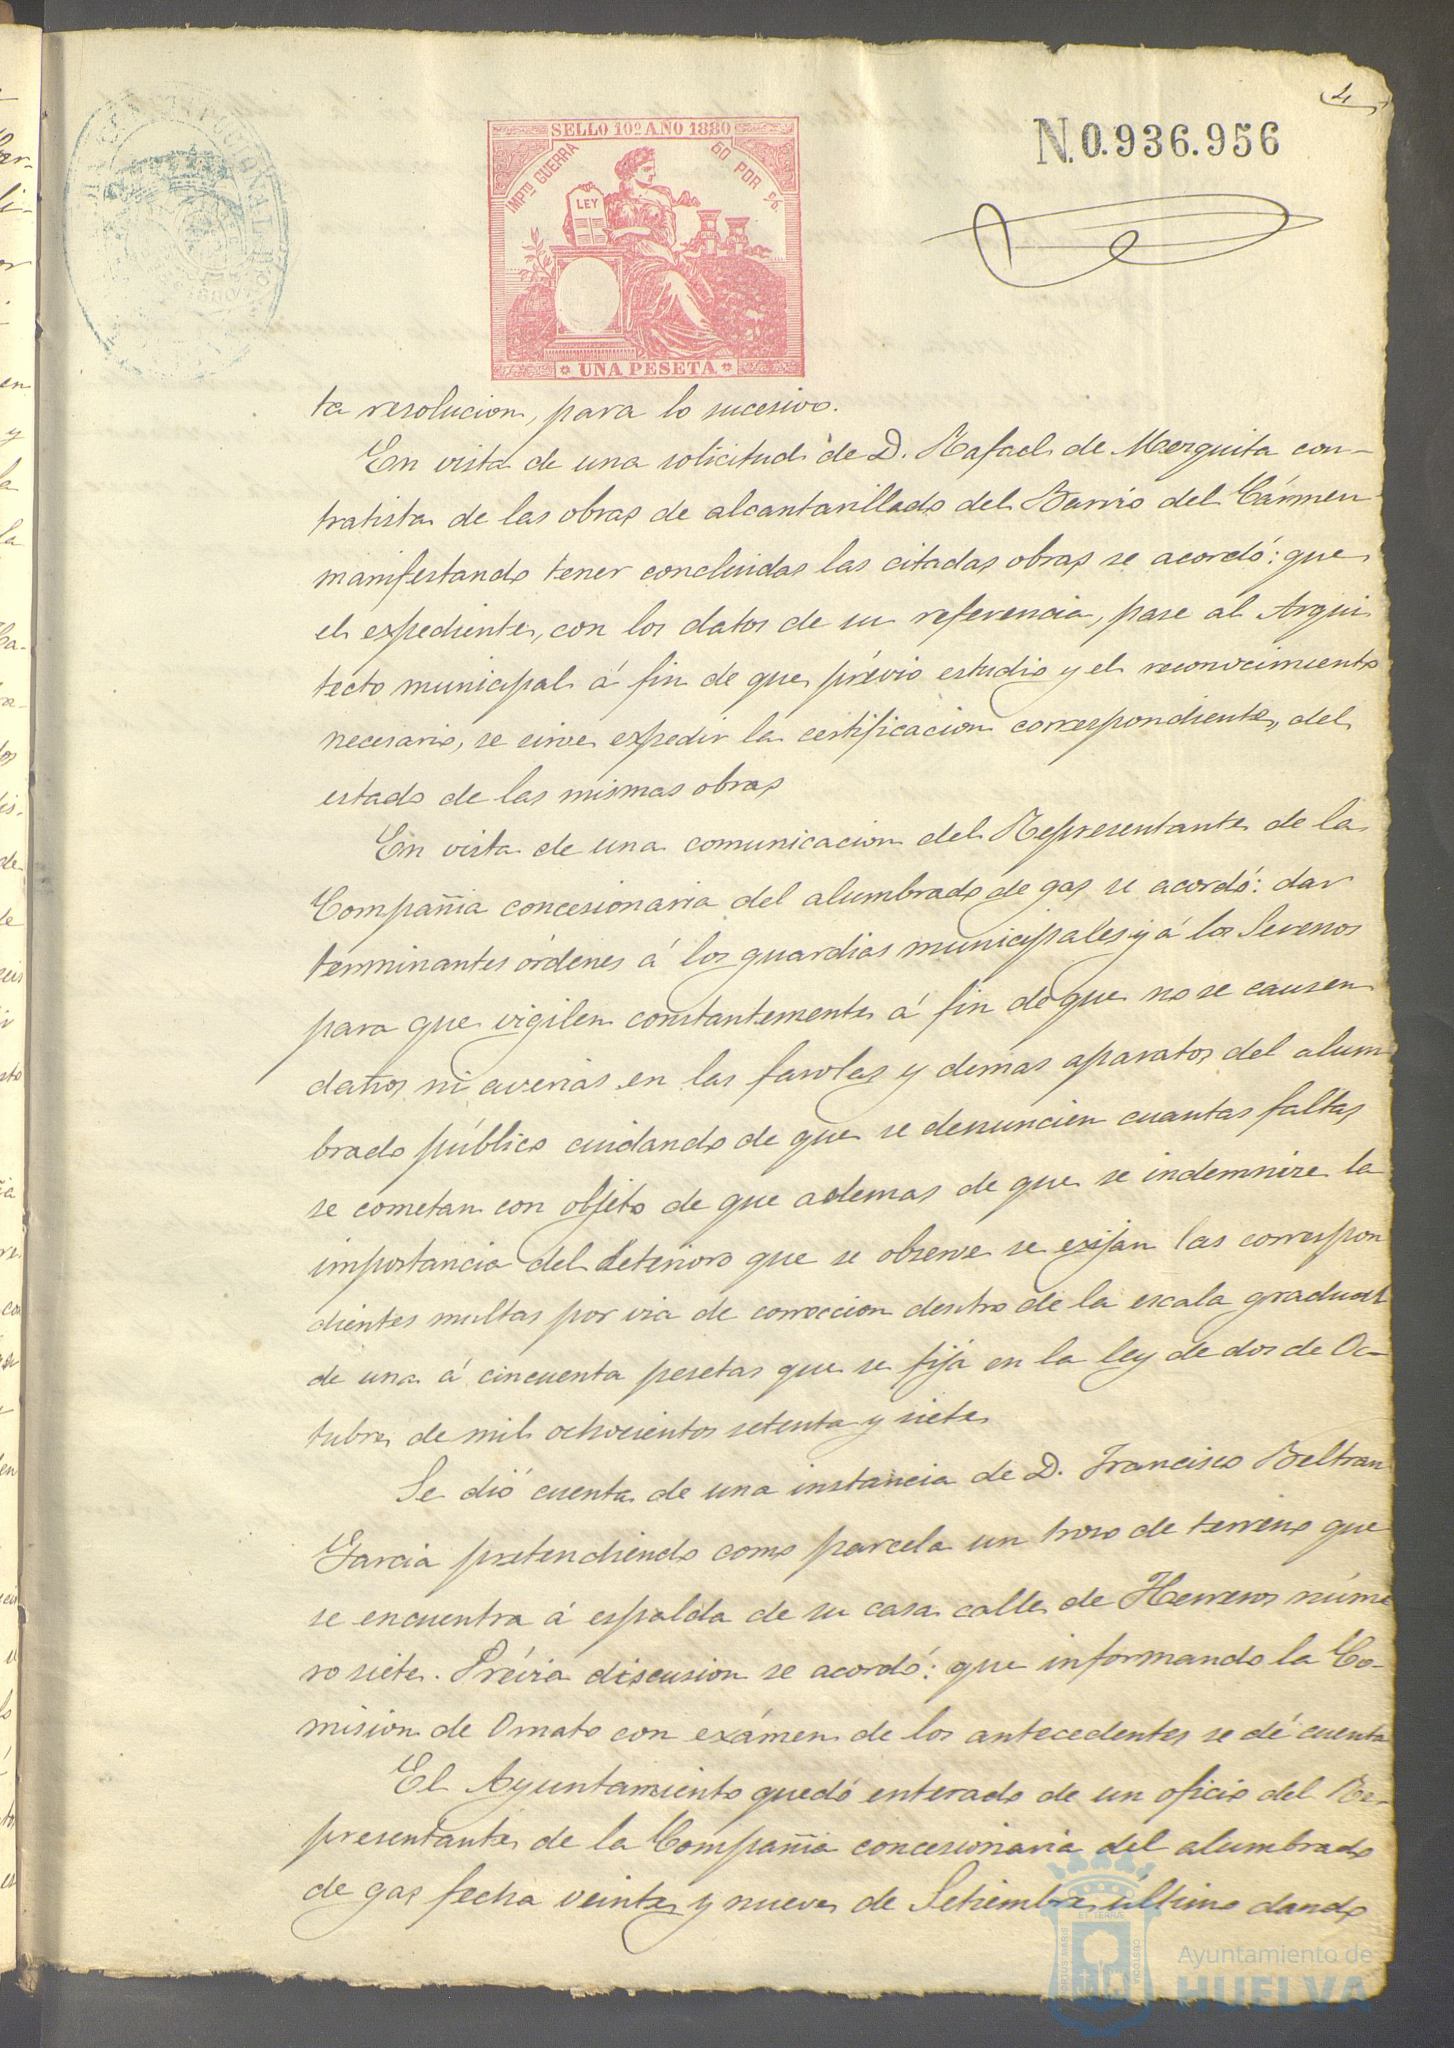 4
SELLO 10º AÑO 1880
IMPTO GUERRA
50 POR %
LEY
UNA PESETA
N.0.936.956
ta resolucion, para lo sucesivo.
En vista de una solicitud de D. Rafael de Mezquita con-
tratista de las obras de alcantarillado del Barrio del Cármen
manifestando tener concluidas las citadas obras se acordó: que
el expediente, con los datos de su referencia, pase al Arqui
tecto municipal á fin de que prévio estudio y el reconocimiento
necesario, se sirve expedir la certificacion correspondiente, del
estado de las mismas obras
En vista de una comunicacion del Representante de la
Compañia concesionaria del alumbrado de gas se acordó: dar
terminantes órdenes á los guardias municipales y á los Serenos
para que vigilen constantemente á fin de que no se causen
daños ni averias en las farolas y demas aparatos del alum
brado público cuidando de que se denuncien cuantas faltas
se cometan con objeto de que ademas de que se indemnize la
importancia del deterioro que se observe se exijan las correspon
dientes multas por via de correccion dentro de la escala gradual
de una á cincuenta pesetas que se fija en la ley de dos de Oc-
tubre de mil ochocientos setenta y siete
Se dió cuenta de una instancia de D. Francisco Beltran
Garcia pretendiendo como parcela un trozo de terreno que
se encuentra á espalda de su casa calle de Herreros núme
ro siete. Prévia discusion se acordó: que informando la Co-
mision de Ornato con exámen de los antecedentes se dé cuenta
El Ayuntamiento quedó enterado de un oficio del Re-
presentante de la Compañia concesionaria del alumbrado
de gas fecha veinte y nueve de Setiembre último dando
Ayuntamiento de
HUELVA